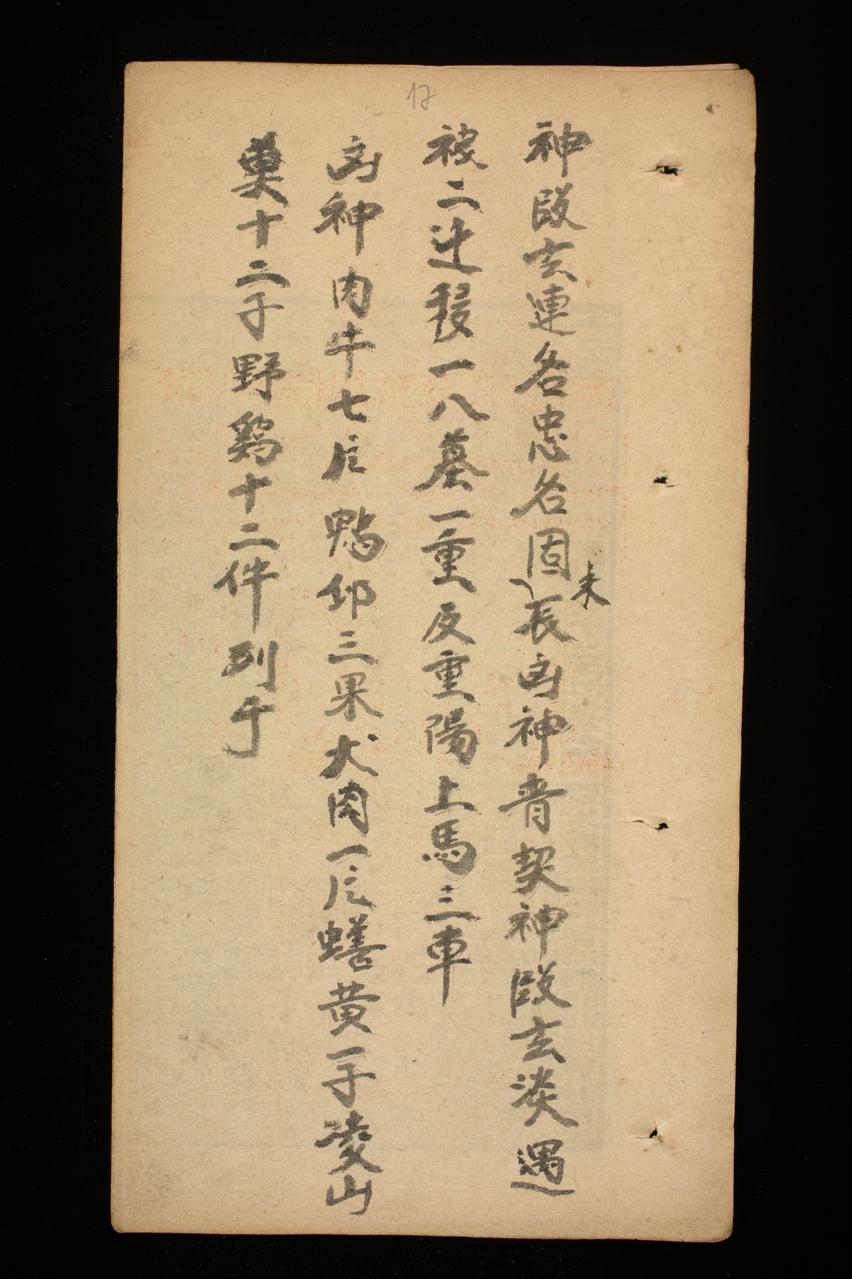 17
神段玄連各忠各固未長凶神青契神段玄淡遇
被二迣稷一八墓一重反重陽上馬三車
凶神肉牛七斤鴨卵三果犬肉一斤蟮黄一子凌山
奠十二子野鷄十二件列于